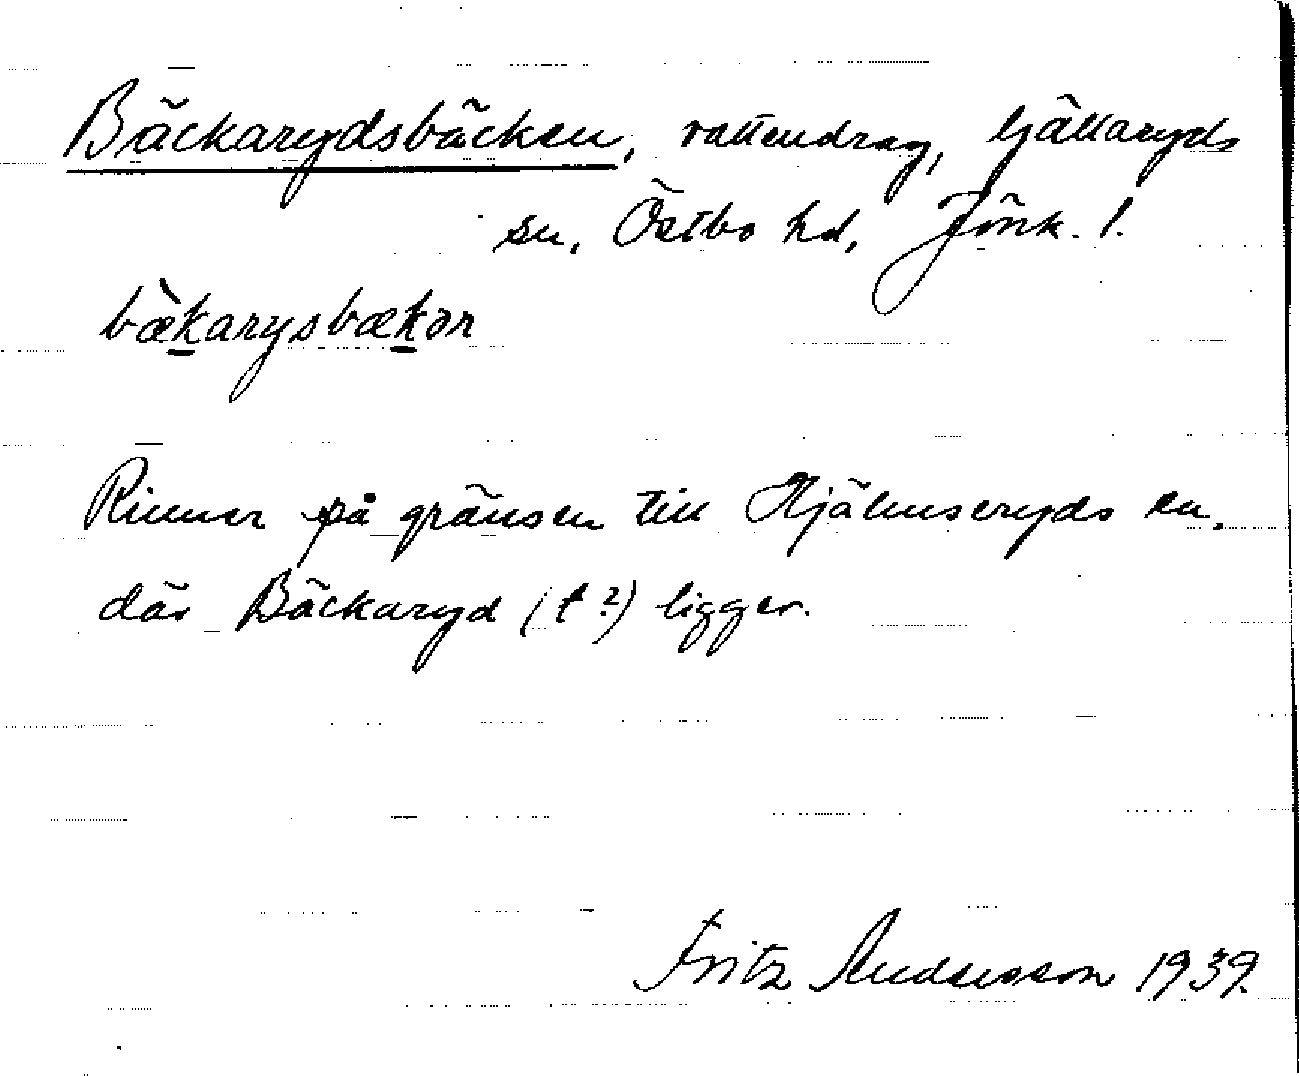 Bäckarydsbäcken, vattendrag, Gällaryds
sn, Östbo hd, Jönk. l.
bæ̀karysbækən
Rinner på gränsen till Hjälmseryds sn.
där Bäckaryd (t?) ligger.
Fritz Andersson 1939.